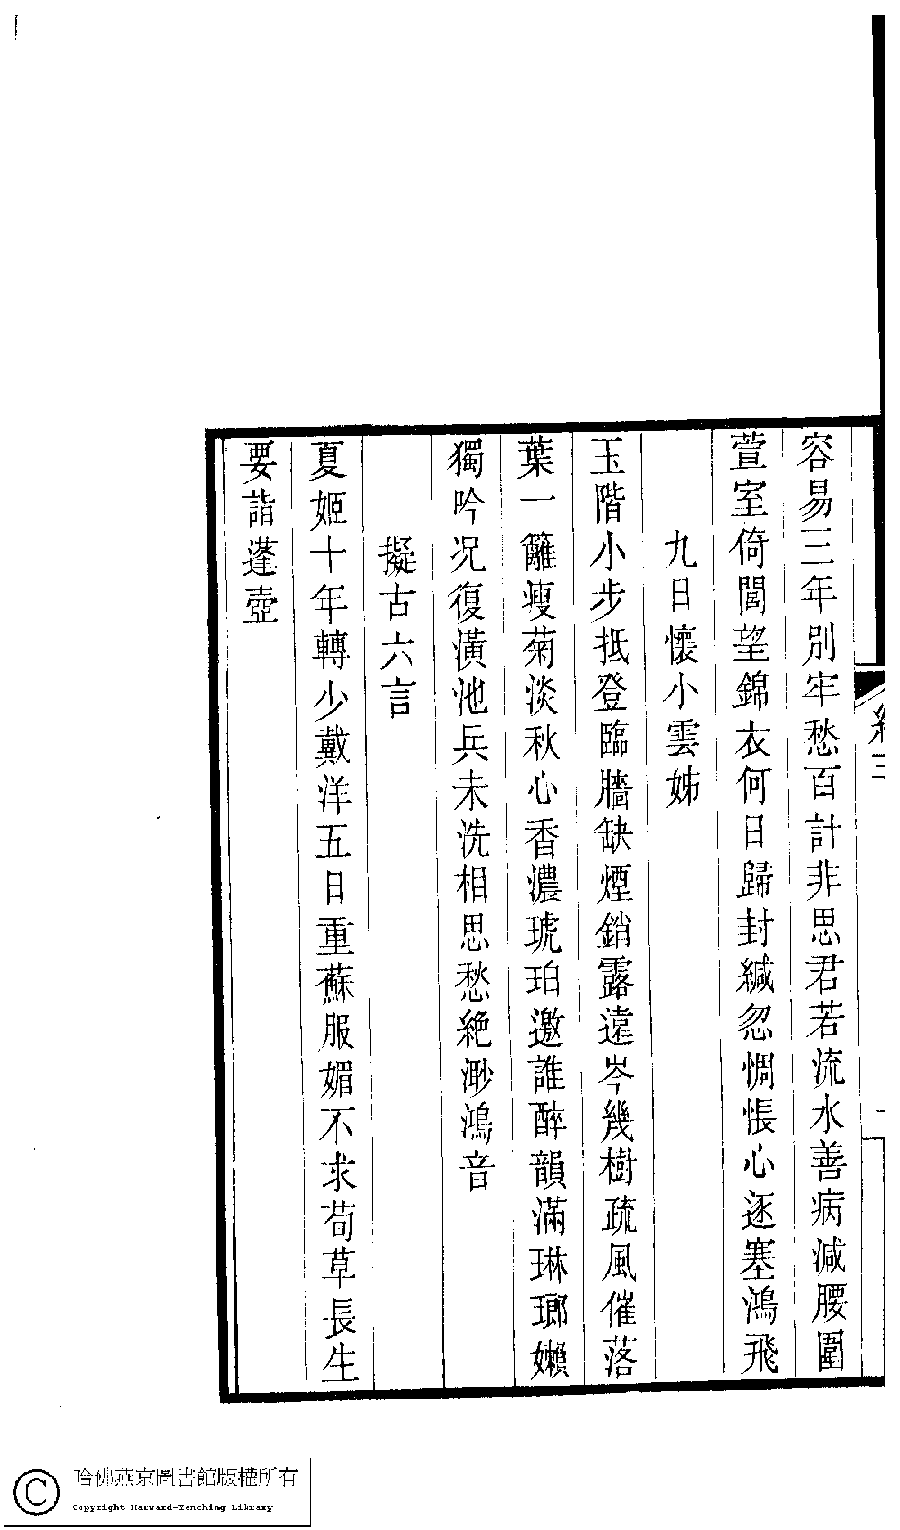 容易三年別牢愁百計非思君若流水善病減腰圍
萱室倚閭望錦衣何日歸封緘忽惆悵心逐塞鴻飛
九日懷小雲姊
玉階小步抵登臨牆缺煙銷露遠岑幾樹疏風催落
葉一籬瘦菊淡秋心香濃琥珀邀誰醉韻滿琳瑯嬾
獨吟況復潢池兵未洗相思愁絕渺鴻音
擬古六言
夏姬十年轉少戴洋五日重蘇服媚不求荀草長生
要詣蓬壺
哈佛燕京圖書館版權所有
Copyright Harvard-Yenching Library